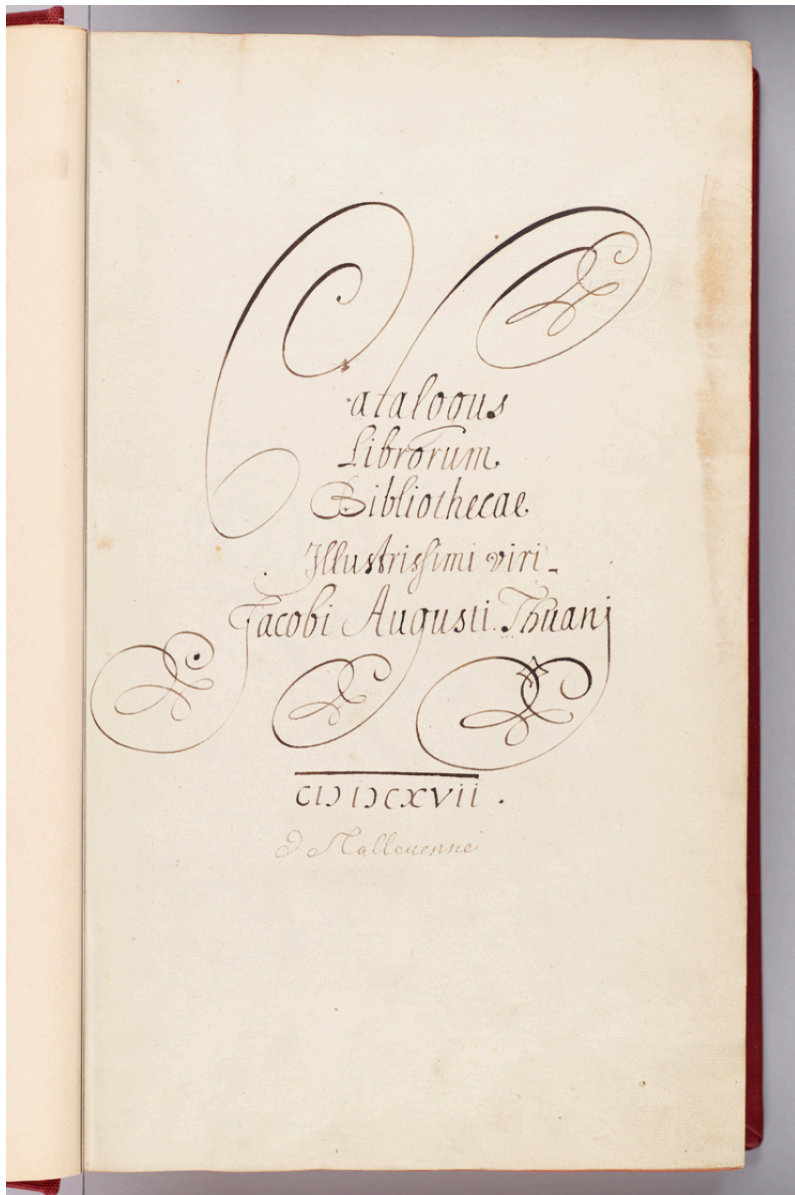 Catalogus
Librorum
Bibliothecae
Illustrissimi viri
Jacobi Augusti Thuanj
CIƆ IƆCXVII.